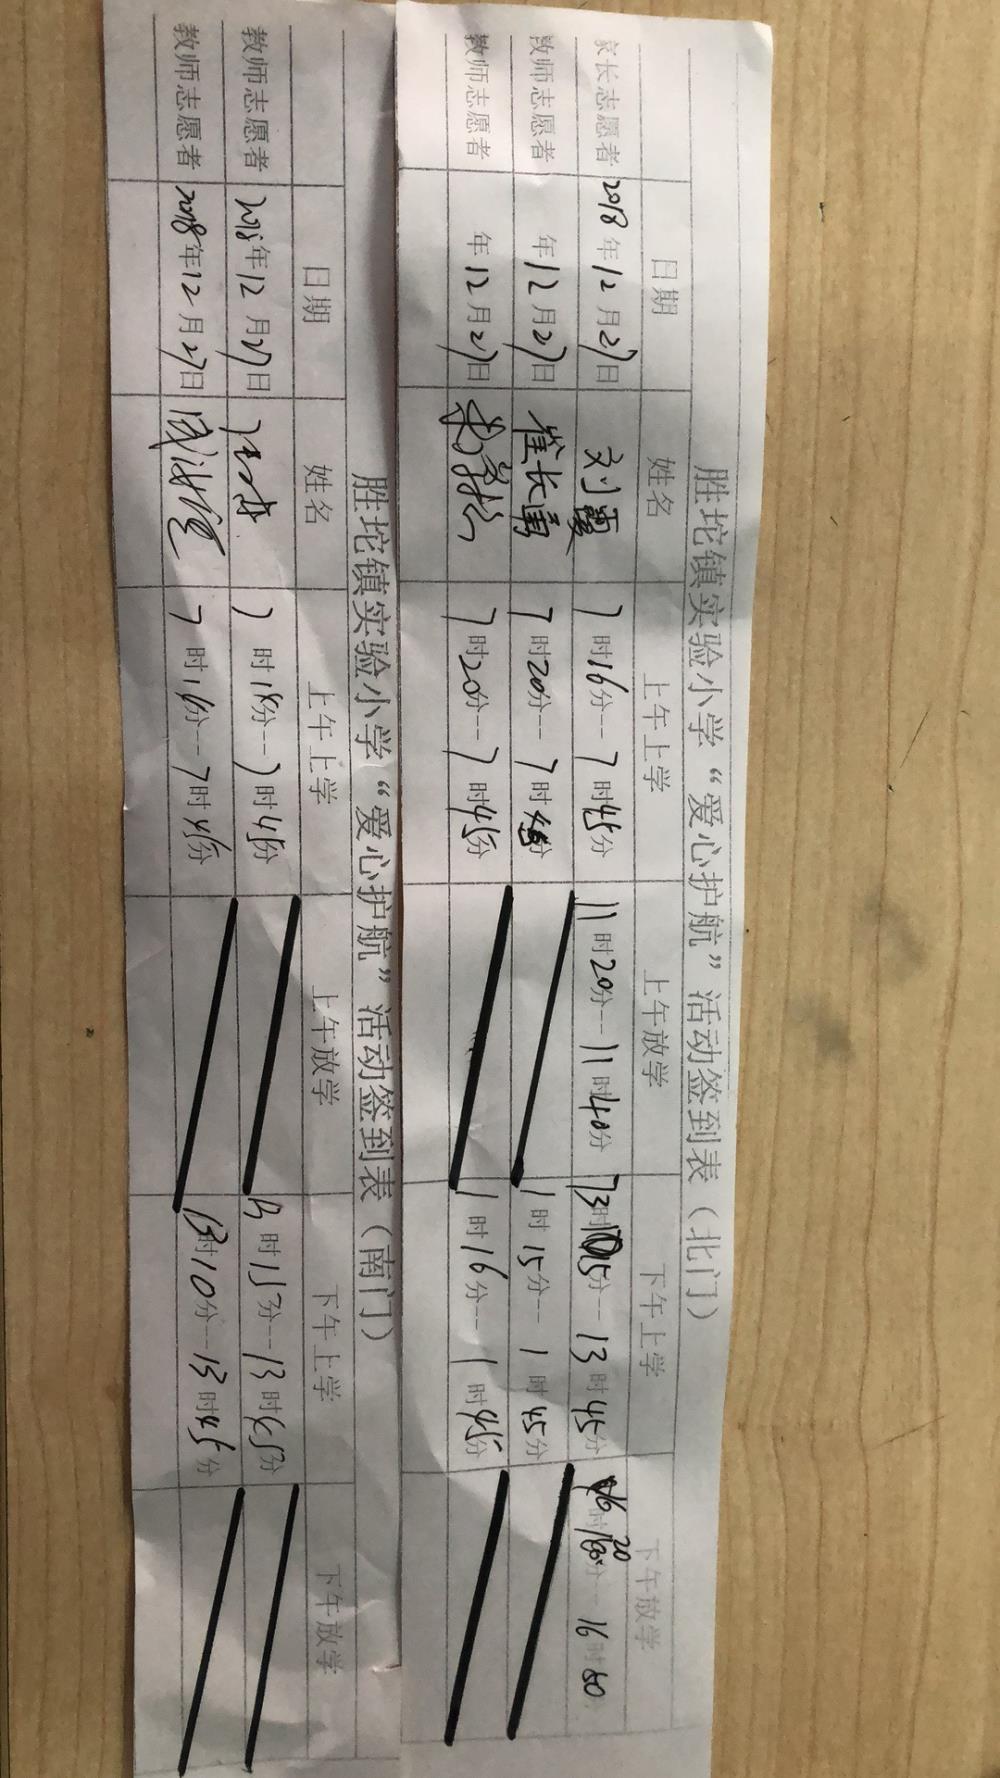 胜坨镇实验小学“爱心护航”活动签到表（北门）
日期 姓名 上午上学 上午放学 下午上学 下午放学
家长志愿者 2018年12月27日 刘霞 7时16分--7时45分 11时20分--11时40分 13时15分--13时45分 16时20分--16时50
教师志愿者 年12月27日 崔长勇 7时20分--7时45分 1时15分--1时45分
教师志愿者 年12月27日 7时20分--7时45分 1时16分--1时45分
胜坨镇实验小学“爱心护航”活动签到表（南门）
日期 姓名 上午上学 上午放学 下午上学 下午放学
教师志愿者 2018年12月27日 7时18分--7时45分 13时13分--13时45分
教师志愿者 2018年12月27日 7时16分--7时45分 13时10分--13时45分